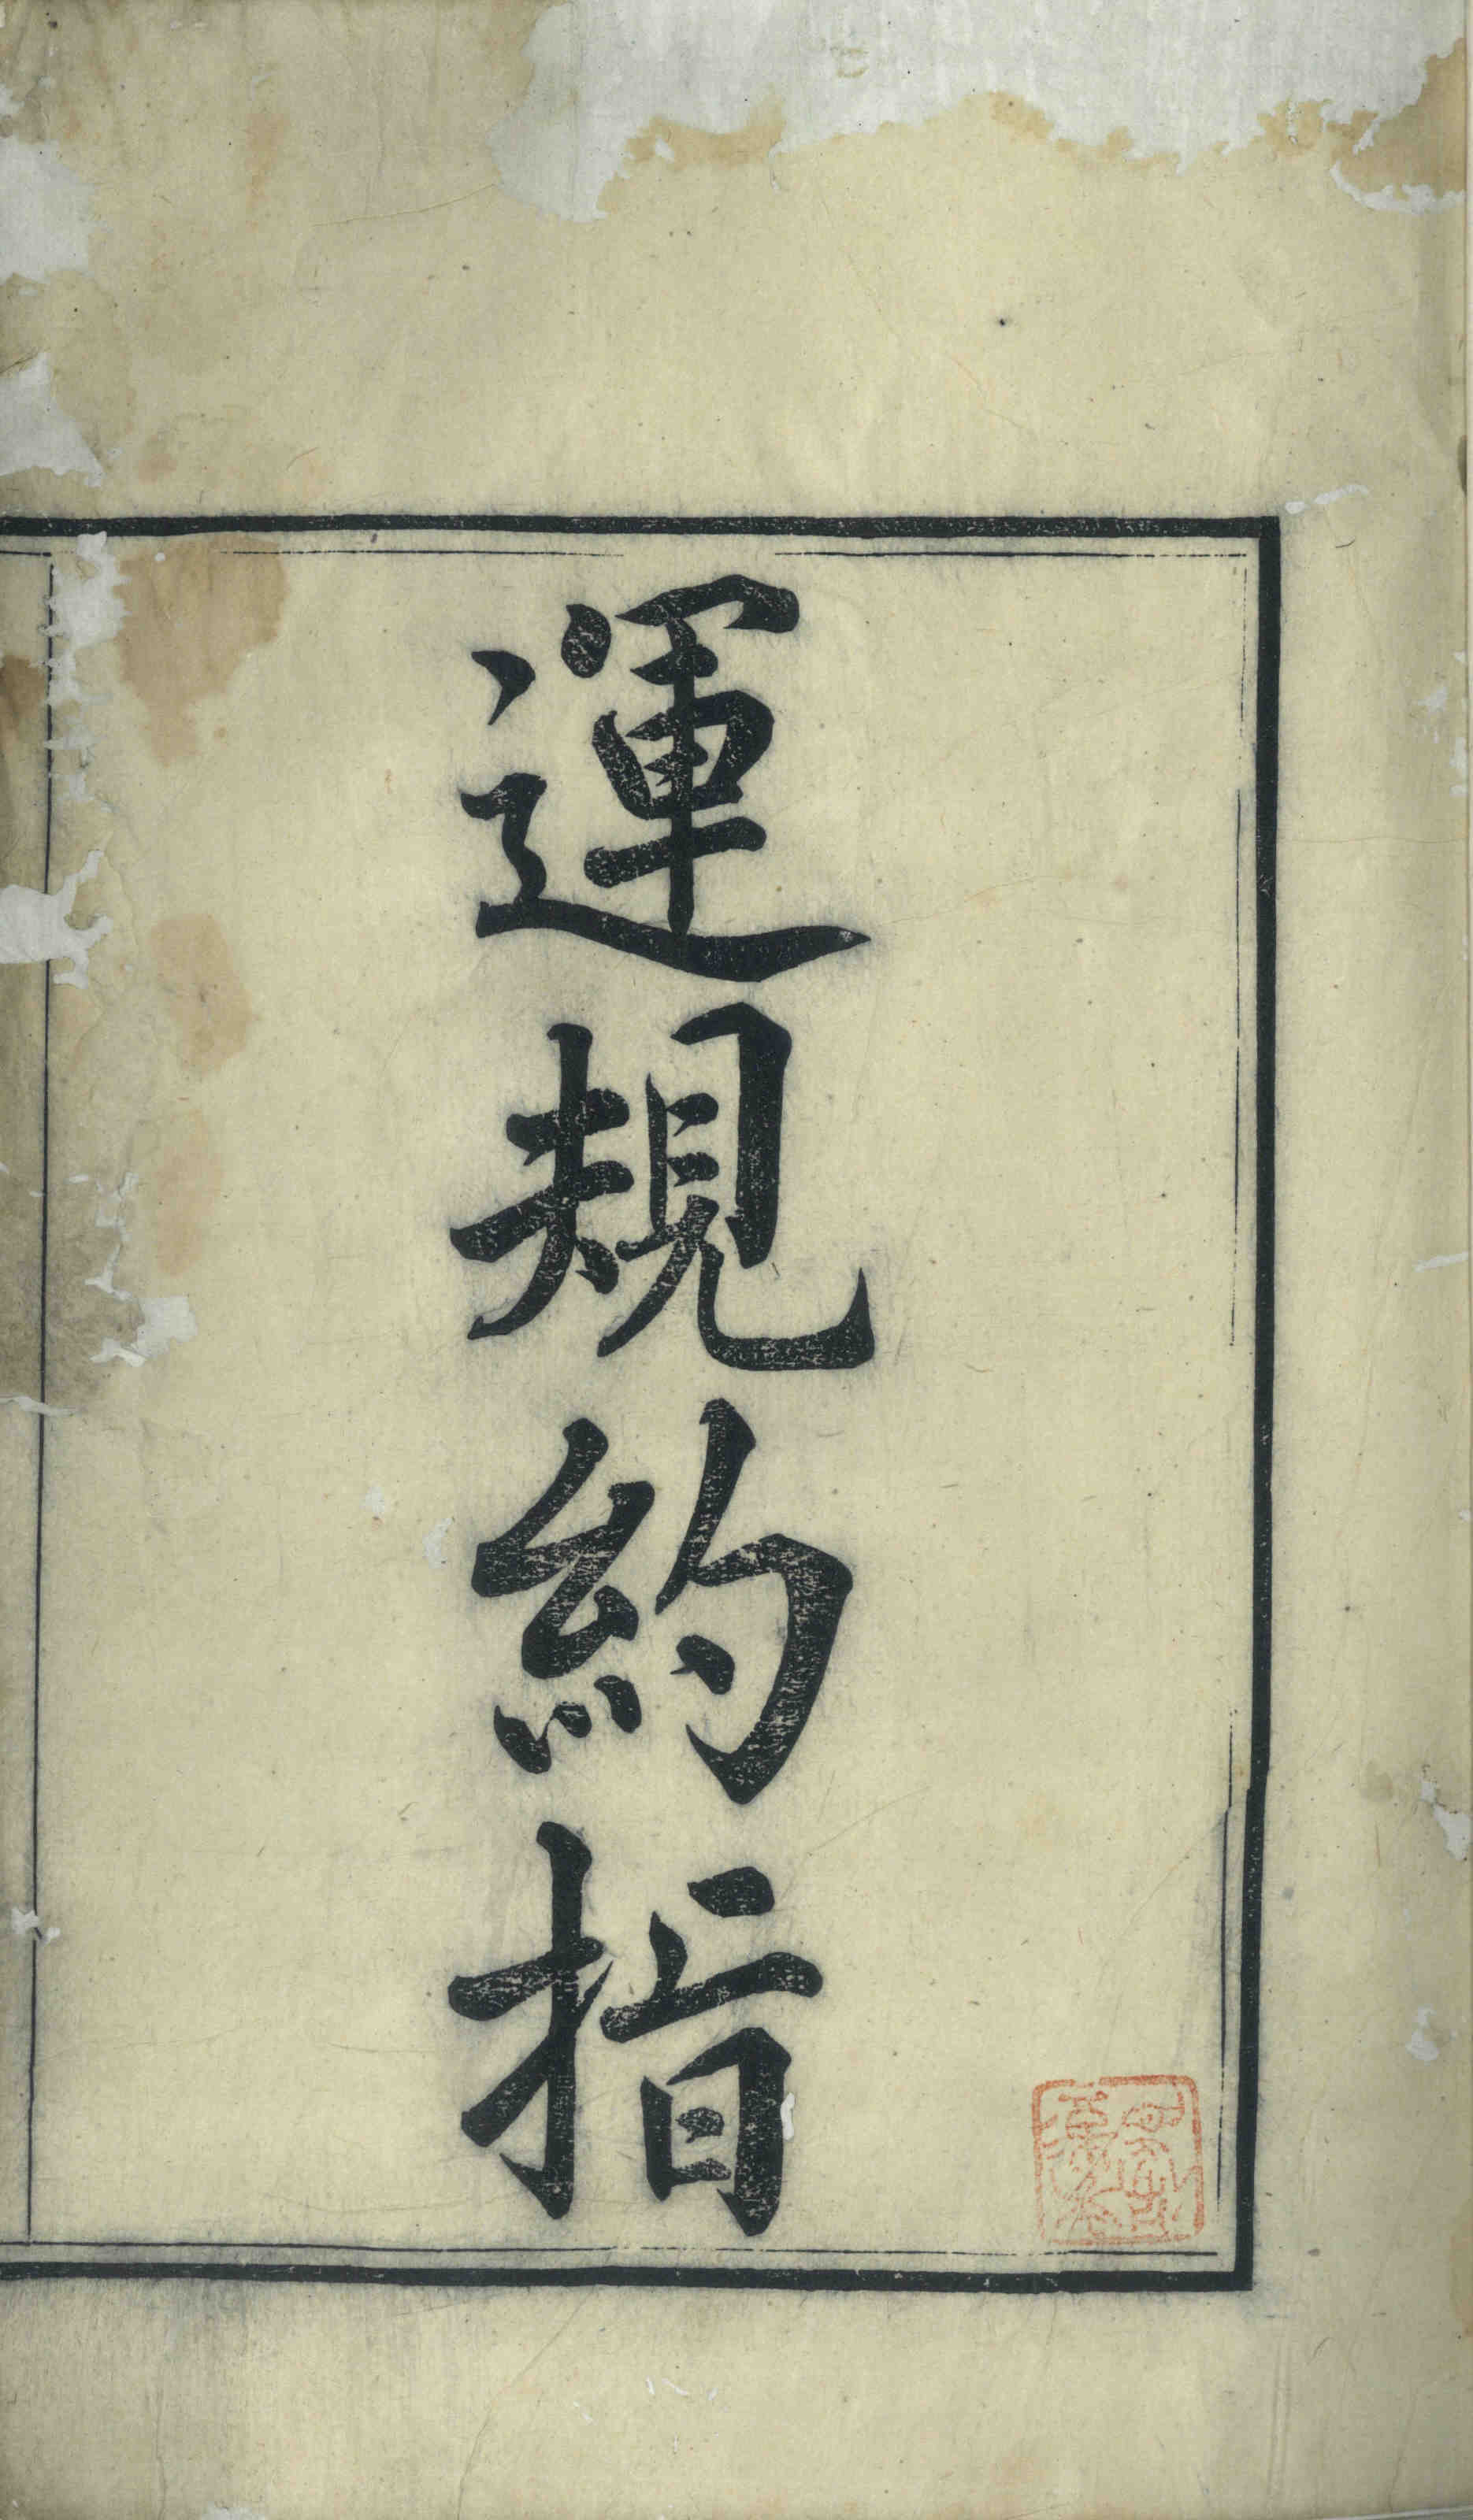 運規約指